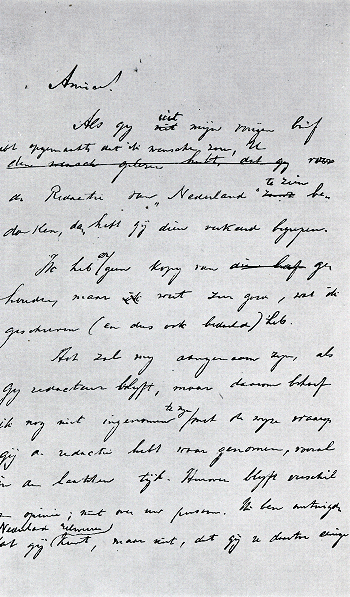 Amice!
Als gij uit mijn vorigen brief
hebt opgemaakt dat ik wensch zou, U
de Redactie van "Nederland" te zien be-
danken, dan hebt gij dien verkeerd begrepen.
Ik heb er geen kopij van ge-
houden, maar weet zeer goed, wat ik
geschreven (en dus ook bedoeld) heb.
Het zal mij aangenaam zijn, als
gij redacteur blijft, maar daarom behoef
ik nog niet ingenomen te zijn met de wijze waarop
gij de redactie hebt waargenomen, vooral
in den laatsten tijd. Hierover blijft verschil
van opinie; niet over uw persoon. Ik ben overtuigd
Nederland
dat gij kunt, maar niet, dat gij